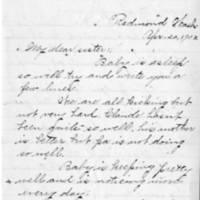 Redmond Wash
Apr. 20, 1902
My dear sister:
Baby is asleep
so will try and write you a
few lines.
We are all kicking but
not very hard. Claude hasn't
been quite so well, his mother
is better but Pa is not doing
so well.
Baby is keeping pretty
well and is noticing more
every day.